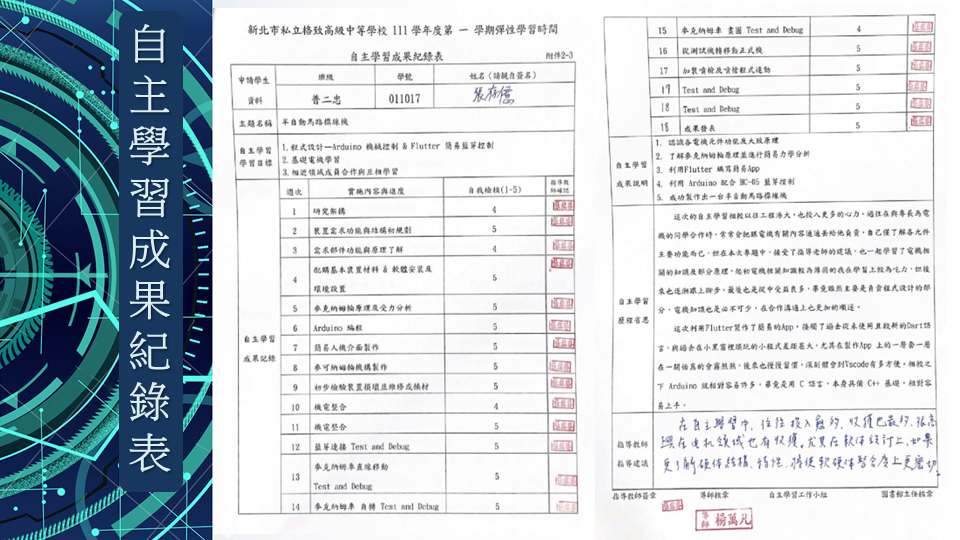 自主學習成果紀錄表
新北市私立格致高級中等學校 111 學年度第 一 學期彈性學習時間
自主學習成果紀錄表
附件2-3
申請學生資料
班級
學號
姓名（請親自簽名）
普二忠
011017
主題名稱
半自動馬路標線機
自主學習學習目標
1.程式設計—Arduino 機械控制 & Flutter 簡易藍芽控制
2.基礎電機學習
3.相近領域成員合作與互相學習
自主學習成果記錄
週次
實施內容與進度
自我檢核(1-5)
指導教師確認
1 研究架構 4
2 裝置需求功能與結構初規劃 5
3 需求部件功能與原理了解 4
4 配購基本裝置材料 & 軟體安裝及環境設置 5
5 麥克納姆輪原理及受力分析 5
6 Arduino 編程 5
7 簡易人機介面製作 5
8 麥可納姆輪機構製作 5
9 初步檢驗裝置損壞並維修或換材 5
10 機電整合 4
11 機電整合 5
12 藍芽連接 Test and Debug 5
13 麥克納姆車直線移動 Test and Debug 5
14 麥克納姆車 自轉 Test and Debug 5
15 麥克納姆車 畫圓 Test and Debug 4
16 從測試機轉移動正式機 5
17 加裝噴槍及噴槍程式連動 5
17 Test and Debug 5
18 Test and Debug 5
18 成果發表 5
自主學習成果說明
1. 認識各電機元件功能及大致原理
2. 了解麥克納姆輪原理並進行簡易力學分析
3. 利用Flutter 編寫簡易App
4. 利用 Arduino 配合 HC-05 藍芽控制
5. 成功製作出一台半自動馬路標線機
自主學習歷程省思
這次的自主學習相較以往工程浩大，也投入更多的心力。過往在與專長為電
機的同學合作時，常常會把跟電機有關內容通通丟給他負責，自己僅了解各元件
主要功能而已，但在本次專題中，接受了指導老師的建議，也一起學習了電機相
關的知識及部分原理，起初電機相關知識較為薄弱的我在學習上較為吃力，但後
來也逐漸跟上腳步，最後也是從中受益良多，畢竟雖然主要是負責程式設計的部
分，電機知識也是必不可少，在合作溝通上也更加的順遂。
這次利用Flutter製作了簡易的App，接觸了過去從未使用且較新的Dart語
言，與過去在小黑窗裡頑玩的小程式差距甚大，尤其在製作App 上的一層套一層
在一開始真的會霧煞煞，後來也慢慢習慣，深刻體會到Vscode有多方便。相較之
下 Arduino 就相對容易許多，畢竟是用 C 語言，本身具備 C++ 基礎，相對容
易上手。
指導教師指導建議
在自主學習中，往往投入愈多，收獲也最多，很高
興在電机領域也有收獲，尤其在軟体設計上，如果
更了解硬体結構、特性，將使軟硬体整合度上更密切。
指導教師簽章
導師核章
自主學習工作小組
圖書館主任核章
導師 楊萬凡